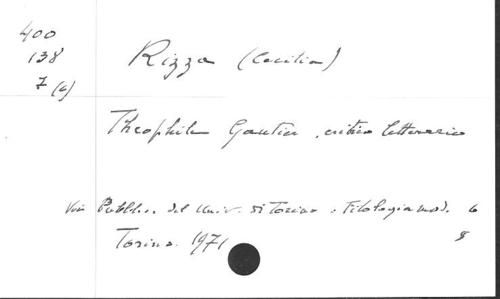 400
138
7 (6)
Rizza (Cecilia)
Théophile Gautier, critico letterario
Pubbl... del Univ. di Torino : Filologia mod. 6
Torino. 1971
8